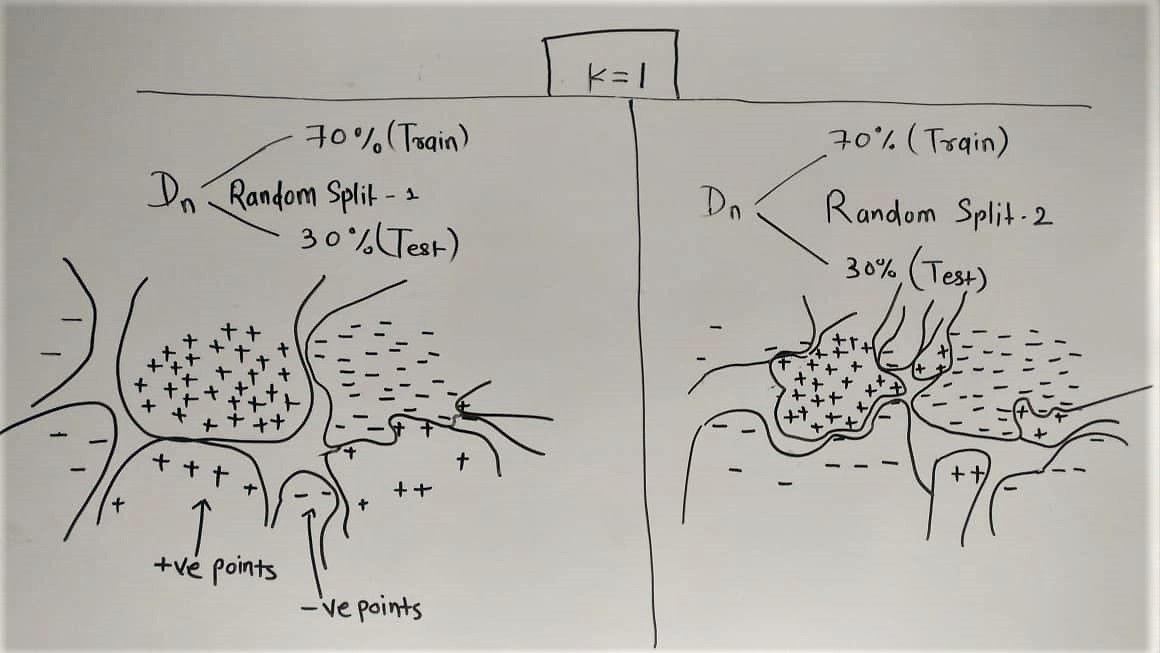 K=1
70%(Train)
Dn Random Split-1
30%(Test)
+ve points
-ve points
70%(Train)
Dn Random Split-2
30%(Test)